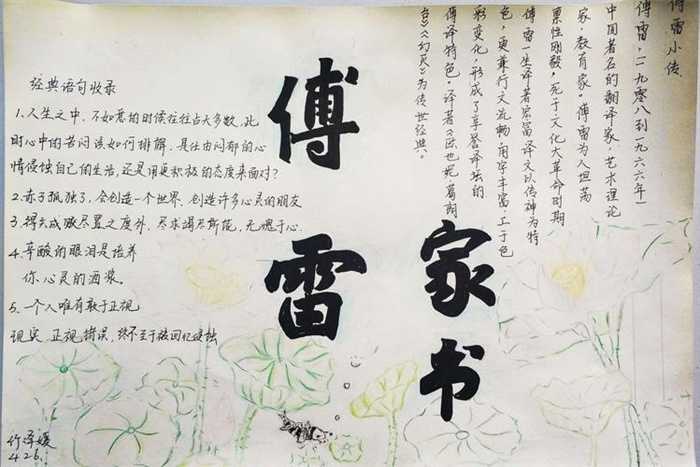 傅雷
家书
傅雷小传
傅雷,(一九零八到一九六六年)
中国著名的翻译家,艺术理论
家,教育家。傅雷为人坦荡
禀性刚毅,死于文化大革命时期
傅雷一生译著宏富,译文以传神为特
色,更兼行文流畅,用字丰富,工于色
彩变化,形成了享誉译坛的
傅译特色。译著《欧也妮·葛朗
台》《幻灭》为传世经典。
经典语句收录
1.人生之中,不如意的时候往往占大多数,此
时心中的苦闷该如何排解,是任由闷郁的心
情侵蚀自己的生活,还是用更积极的态度来面对?
2.赤子孤独了,会创造一个世界,创造许多心灵的朋友
3.得失成败尽置之度外,尽求竭尽所能,无愧于心.
4.辛酸的眼泪是培养
你心灵的酒浆。
5.一个人唯有敢于正视
现实,正视错误,终不至于被回忆侵蚀
4.26.